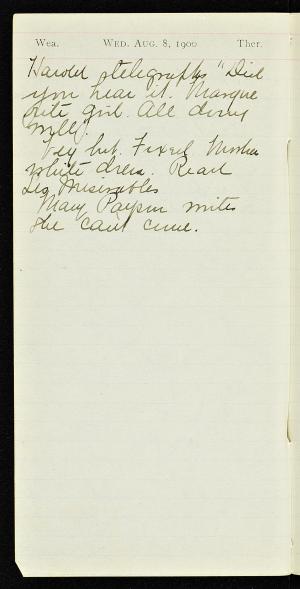 Wea. WED. AUG. 8, 1900 Ther.
Harold telegraphs "Did
you hear it. Margue
rite girl. All doing
well".
Very hot. Fixed
white dress. Read
Les Miserables
Mary Payson writes
she can't come.